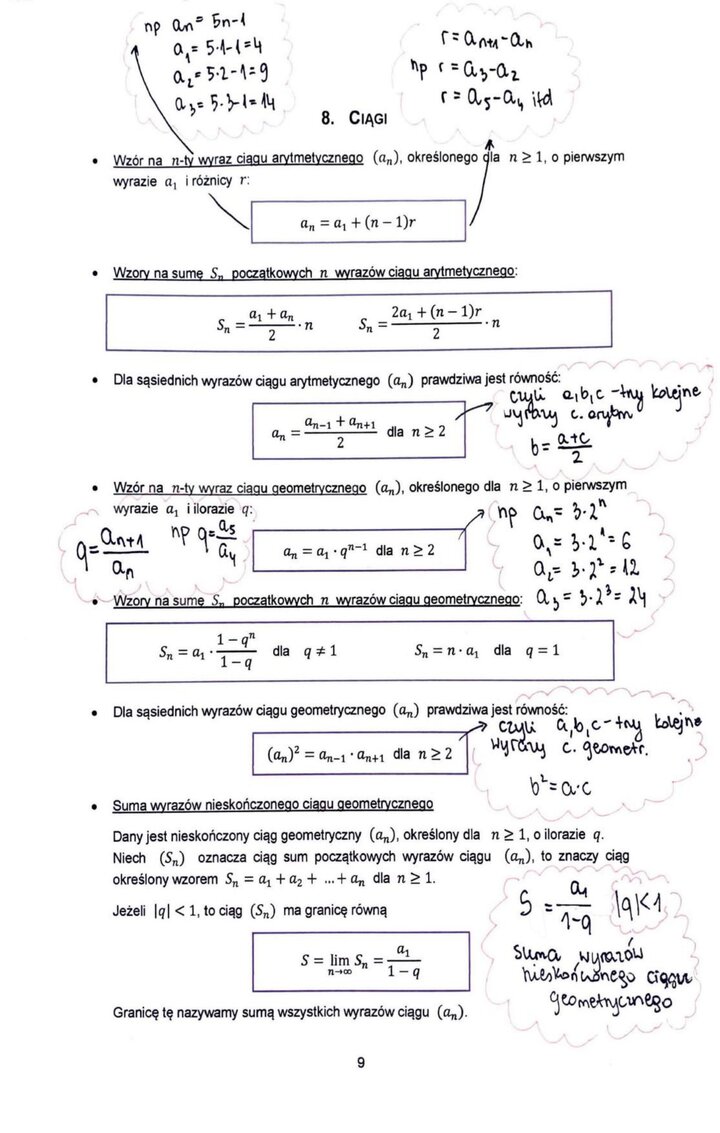 np an = 5n-1
a₁ = 5·1-1=4
a₂ = 5·2-1=9
a₃ = 5·3-1=14
r = aₙ₊₁-aₙ
np r = a₃-a₂
r = a₅-a₄ itd
8. CIĄGI
• Wzór na n-ty wyraz ciągu arytmetycznego (aₙ), określonego dla n ≥ 1, o pierwszym
wyrazie a₁ i różnicy r:
aₙ = a₁ + (n − 1)r
• Wzory na sumę Sₙ początkowych n wyrazów ciągu arytmetycznego:
Sₙ = (a₁ + aₙ)/2 · n Sₙ = (2a₁ + (n − 1)r)/2 · n
• Dla sąsiednich wyrazów ciągu arytmetycznego (aₙ) prawdziwa jest równość:
aₙ = (aₙ₋₁ + aₙ₊₁)/2 dla n ≥ 2
czyli a,b,c - trzy kolejne
wyrazy c. arytm
b = (a+c)/2
• Wzór na n-ty wyraz ciągu geometrycznego (aₙ), określonego dla n ≥ 1, o pierwszym
wyrazie a₁ i ilorazie q:
q = aₙ₊₁/aₙ np q = a₅/a₄
aₙ = a₁ · qⁿ⁻¹ dla n ≥ 2
np aₙ = 3·2ⁿ
a₁ = 3·2¹ = 6
a₂ = 3·2² = 12
a₃ = 3·2³ = 24
• Wzory na sumę Sₙ początkowych n wyrazów ciągu geometrycznego:
Sₙ = a₁ · (1 − qⁿ)/(1 − q) dla q ≠ 1 Sₙ = n · a₁ dla q = 1
• Dla sąsiednich wyrazów ciągu geometrycznego (aₙ) prawdziwa jest równość:
(aₙ)² = aₙ₋₁ · aₙ₊₁ dla n ≥ 2
czyli a,b,c - trzy kolejne
wyrazy c. geometr.
b² = a·c
• Suma wyrazów nieskończonego ciągu geometrycznego
Dany jest nieskończony ciąg geometryczny (aₙ), określony dla n ≥ 1, o ilorazie q.
Niech (Sₙ) oznacza ciąg sum początkowych wyrazów ciągu (aₙ), to znaczy ciąg
określony wzorem Sₙ = a₁ + a₂ + ... + aₙ dla n ≥ 1.
Jeżeli |q| < 1, to ciąg (Sₙ) ma granicę równą
S = lim n→∞ Sₙ = a₁/(1 − q)
Granicę tę nazywamy sumą wszystkich wyrazów ciągu (aₙ).
S = a₁/(1-q) |q|<1
suma wyrazów
nieskończonego ciągu
geometrycznego
9